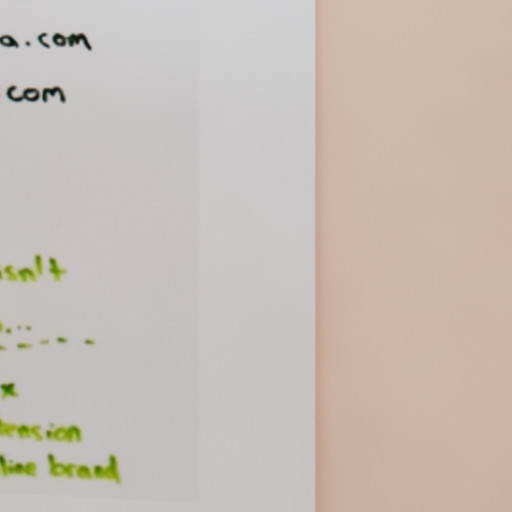 a.com
com
asn't
...
x
tension
line brand